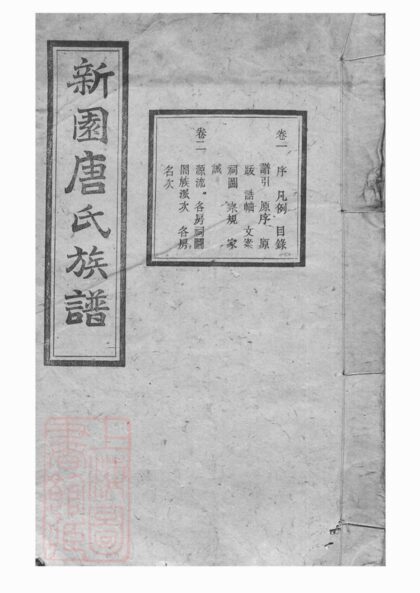 新園唐氏族譜
卷一 序 凡例 目錄
譜引 原序 原
跋 誥軸 文案
祠圖 宗規 家
誡
卷二 源流 各房祠圖
閤族派次 各房
名次